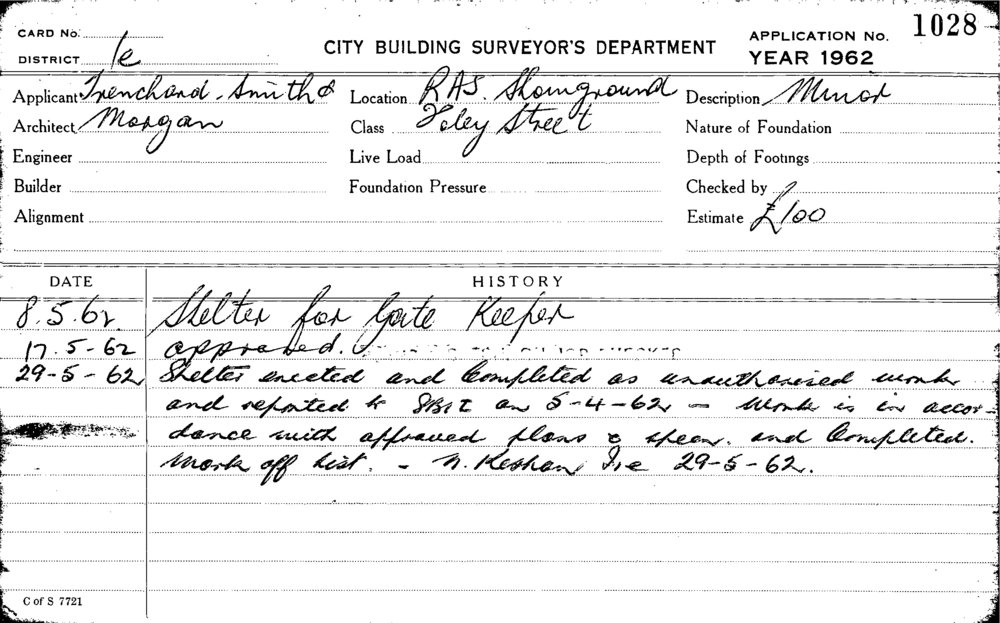 CARD No.
1028
APPLICATION No.
DISTRICT 1e
CITY BUILDING SURVEYOR'S DEPARTMENT
YEAR 1962
Applicant Trenchard, Smith & Location RAS. Showground Description Minor
Architect Morgan Class Foley Street Nature of Foundation
Engineer Live Load Depth of Footings
Builder Foundation Pressure Checked by
Alignment Estimate £100
DATE HISTORY
8.5.62 Shelter for Gate Keeper
17.5-62 approved.
29-5-62 Shelter erected and Completed as unauthorised work
and reported to SBI on 5-4-62 - Work is in accor-
dance with approved plans & specn. and Completed.
Mark off List. - N. Keshan 29-5-62.
C of S 7721